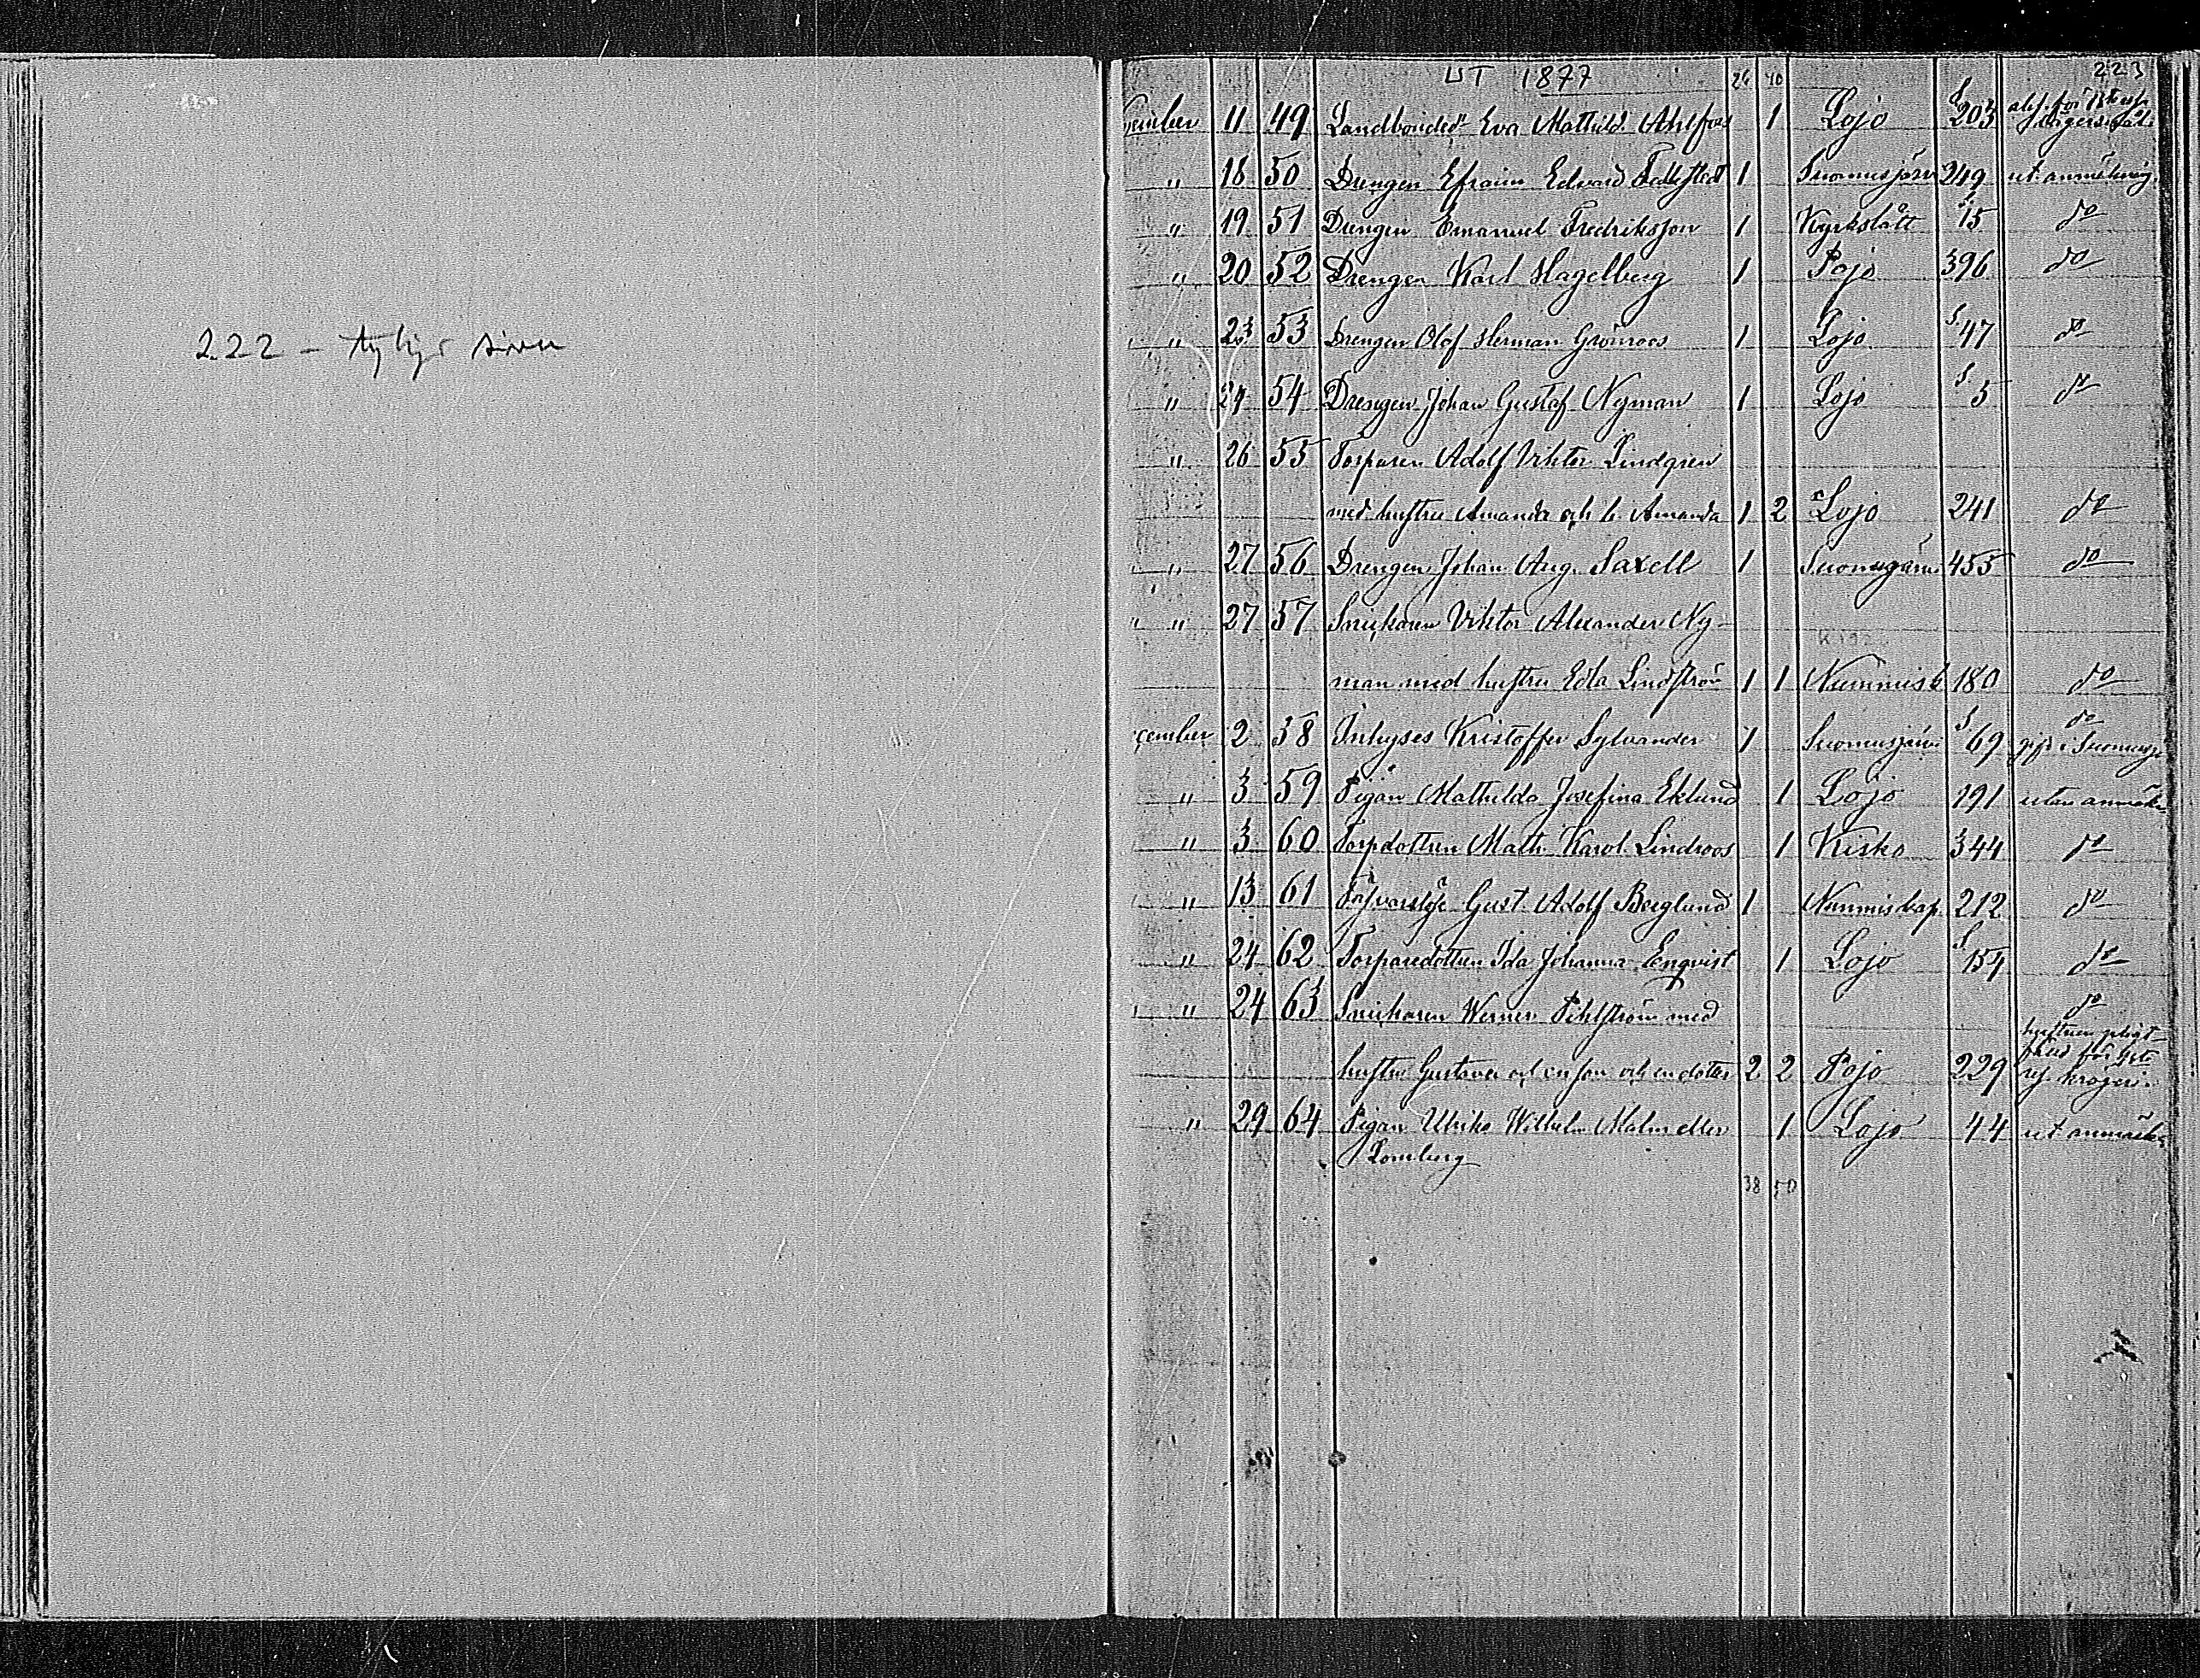 222 - tyhjä sivu
UT 1877 26 40 223
vember 11 49 Landbonded. Eva Mathild. Ahlfors 1 Lojo S. 203
" 18 50 Drengen Efraim Edvard Fedtstedt 1 Suomusjärv 249 ut. anmälning.
" 19 51 Drengen Emanuel Fredriksson 1 Kyrkslätt S. 15 do
" 20 52 Drengen Karl Hagelberg 1 Pojo 396 do
" 23 53 Drengen Olof Herman Grönroos 1 Lojo S. 47 do
" 24 54 Drengen Johan Gustaf Nyman 1 Lojo S. 5 do
" 26 55 Torparen Adolf Viktor Lindgren
med hustru Amanda och b. Amanda 1 2 Lojo 241 do
" 27 56 Drengen Johan Aug. Saxell 1 Suomusjärvi 455 do
" 27 57 Snickaren Viktor Alexander Ny-
man med hustru Edla Lindström 1 1 Nummis k 180 do
cember 2 58 Inhyses Kristoffer Sylvander 1 Suomusjärvi S. 69 do
gift i Suomusj.
" 3 59 Pigan Mathilda Josefina Eklund 1 Lojo 191 utan anmäln
" 3 60 Torpdottren Math. Karol. Lindroos 1 Kisko 344 do
" 13 61 Gust. Adolf Berglund 1 Nummis kap. 212 do
" 24 62 Torparedottren Ida Johanna Enqvist 1 Lojo S. 154 do
" 24 63 Snickaren Werner Pihlström med do
hustru Gustava och en son och en dotter 2 2 Pojo 229
" 29 64 Pigan Ulrika Wilhelm. Malm eller 1 Lojo 44 ut anmäln
Lomberg
38 50